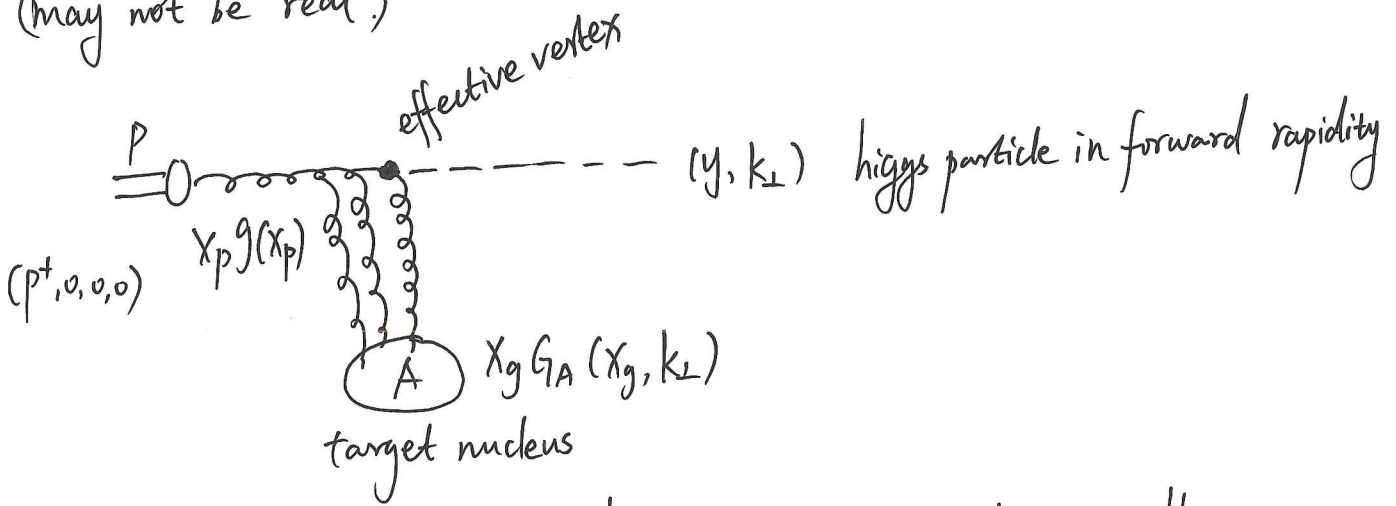 (may not be real.)
effective vertex
P
(y, k⊥) higgs particle in forward rapidity
Xp g(Xp)
(p⁺,0,0,0)
A
Xg GA (Xg, k⊥)
target nucleus